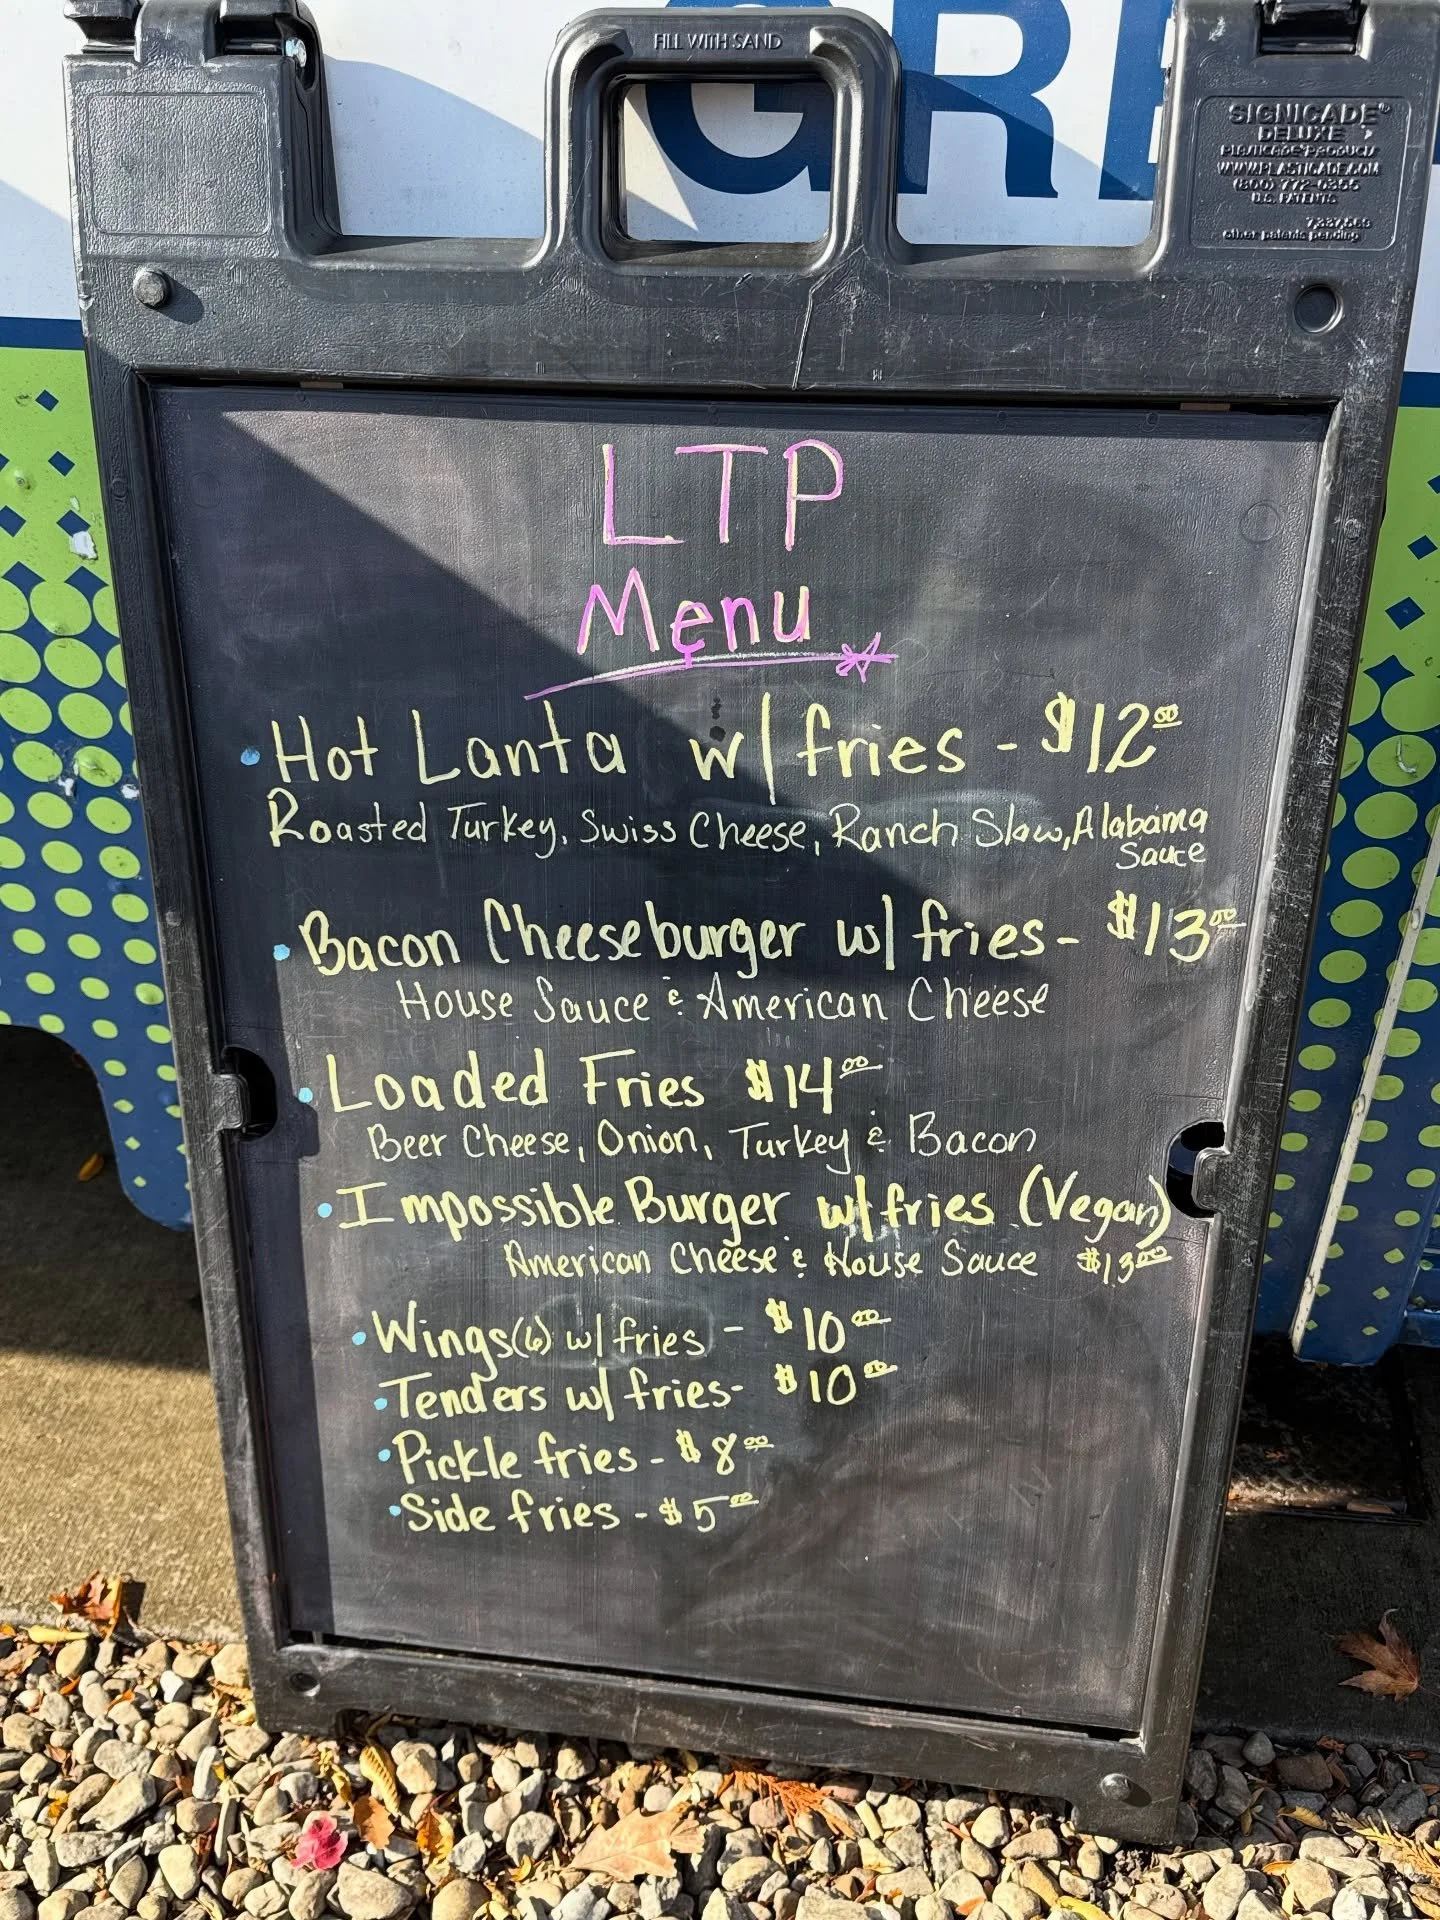 FILL WITH SAND
GRE
SIGNICADE®
DELUXE
PLASTICADE PRODUCTS
WWW.PLASTICADE.COM
(800) 772-0355
U.S. PATENTS
7,337,569
other patents pending
LTP
Menu
• Hot Lanta w/ fries - $12.00
Roasted Turkey, Swiss Cheese, Ranch Slaw, Alabama
Sauce
• Bacon Cheeseburger w/ fries - $13.00
House Sauce & American Cheese
• Loaded Fries $14.00
Beer Cheese, Onion, Turkey & Bacon
• Impossible Burger w/ fries (Vegan)
American Cheese & House Sauce $13.00
• Wings (6) w/ fries - $10.00
• Tenders w/ fries - $10.00
• Pickle fries - $8.00
• Side fries - $5.00